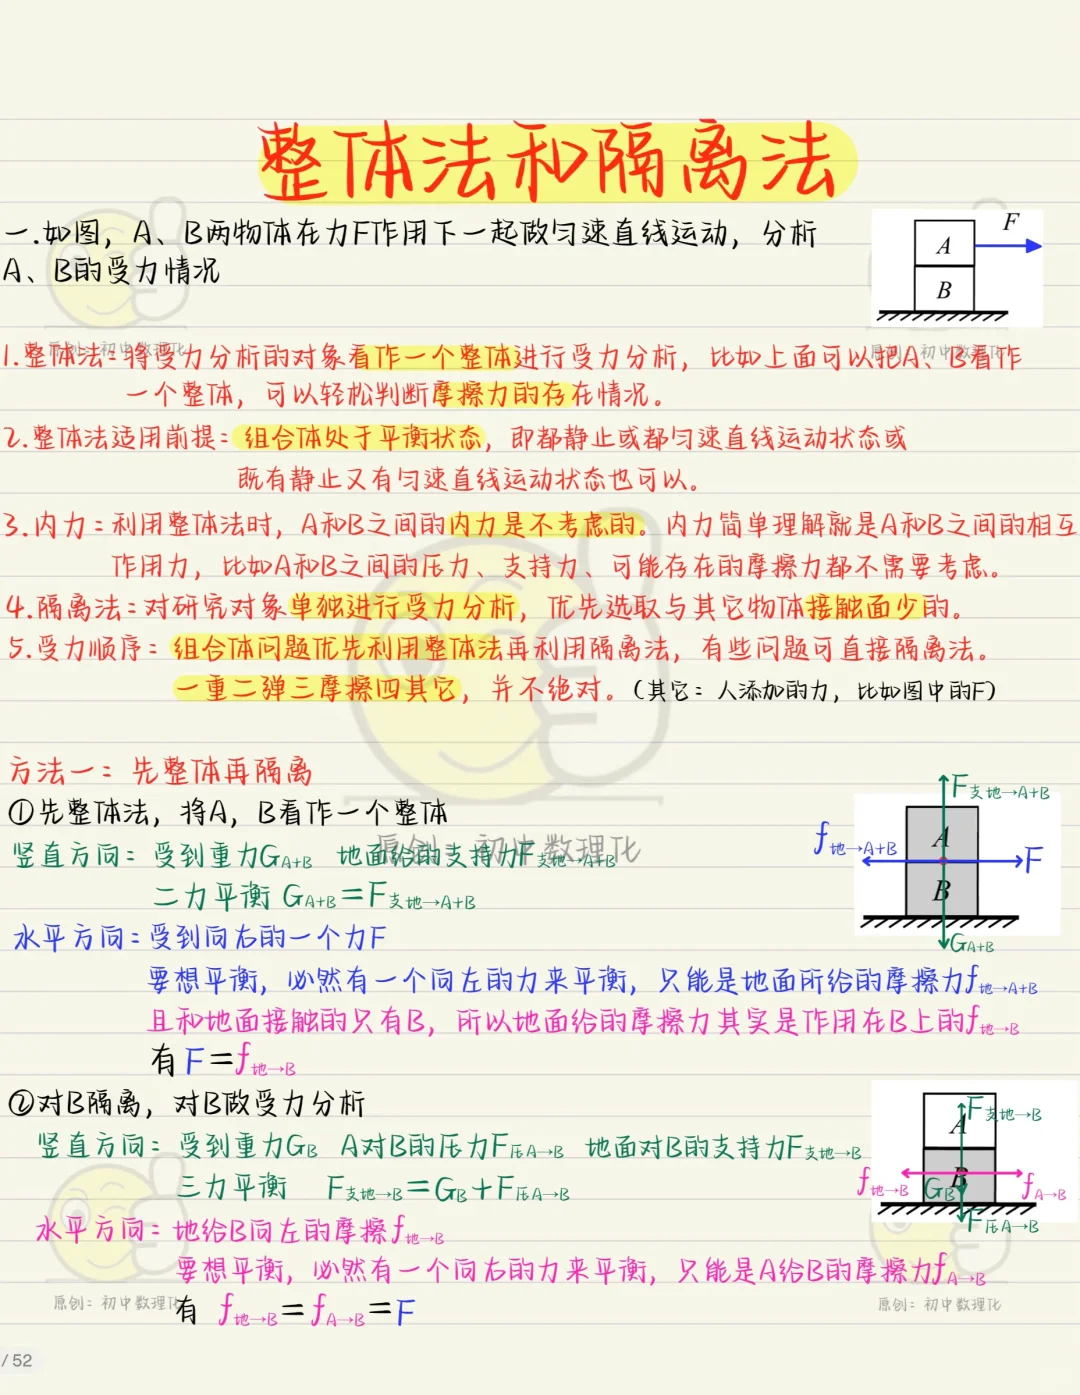 整体法和隔离法
一.如图，A、B两物体在力F作用下一起做匀速直线运动，分析
A、B的受力情况
F
A
B
1.整体法：将受力分析的对象看作一个整体进行受力分析，比如上面可以把A、B看作
一个整体，可以轻松判断摩擦力的存在情况。
2.整体法适用前提：组合体处于平衡状态，即都静止或都匀速直线运动状态或
既有静止又有匀速直线运动状态也可以。
3.内力：利用整体法时，A和B之间的内力是不考虑的。内力简单理解就是A和B之间的相互
作用力，比如A和B之间的压力、支持力、可能存在的摩擦力都不需要考虑。
4.隔离法：对研究对象单独进行受力分析，优先选取与其它物体接触面少的。
5.受力顺序：组合体问题优先利用整体法再利用隔离法，有些问题可直接隔离法。
一重二弹三摩擦四其它，并不绝对。（其它：人添加的力，比如图中的F）
方法一：先整体再隔离
①先整体法，将A，B看作一个整体
竖直方向：受到重力GA+B 地面给的支持力F支地→A+B
二力平衡 GA+B=F支地→A+B
水平方向：受到向右的一个力F
要想平衡，必然有一个向左的力来平衡，只能是地面所给的摩擦力f地→A+B
且和地面接触的只有B，所以地面给的摩擦力其实是作用在B上的f地→B
有F=f地→B
F支地→A+B
f地→A+B
A
F
B
GA+B
②对B隔离，对B做受力分析
竖直方向：受到重力GB A对B的压力F压A→B 地面对B的支持力F支地→B
三力平衡 F支地→B=GB+F压A→B
水平方向：地给B向左的摩擦f地→B
要想平衡，必然有一个向右的力来平衡，只能是A给B的摩擦力fA→B
有 f地→B=fA→B=F
F支地→B
A
f地→B
GB
B
fA→B
F压A→B
原创：初中数理化
原创：初中数理化
原创：初中数理化
原创：初中数理化
原创：初中数理化
/ 52